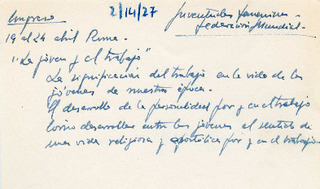 Congreso
2/14/27
Juventudes femeninas
Federación Mundial.
19 al 24 abril Roma.
1. "La joven y el trabajo"
La significación del trabajo en la vida de las
jóvenes de nuestra época.
El desarrollo de la personalidad por y en el trabajo
Cómo desarrollar entre las jóvenes el sentido de
una vida religiosa y apostólica por y en el trabajo.